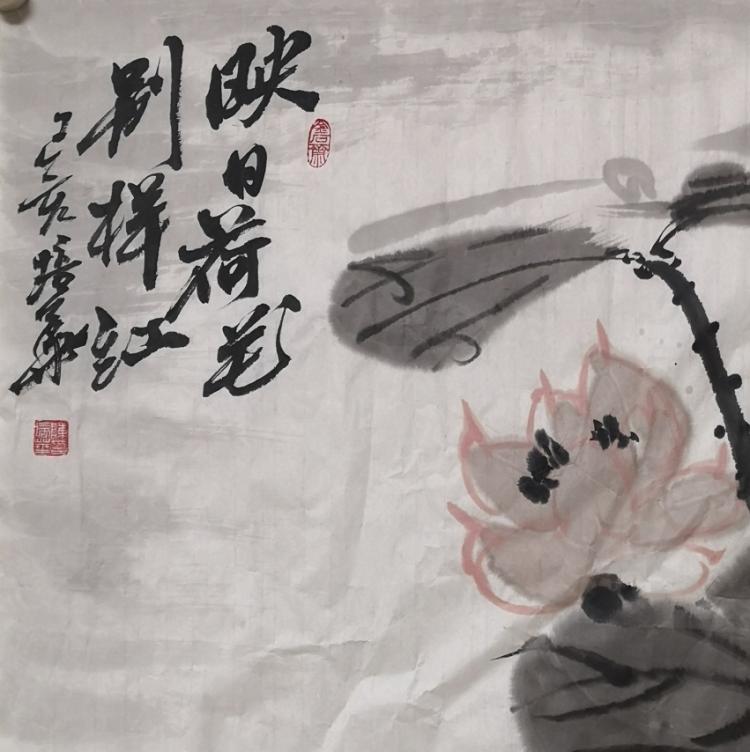 映日荷花
别样红
己亥培华